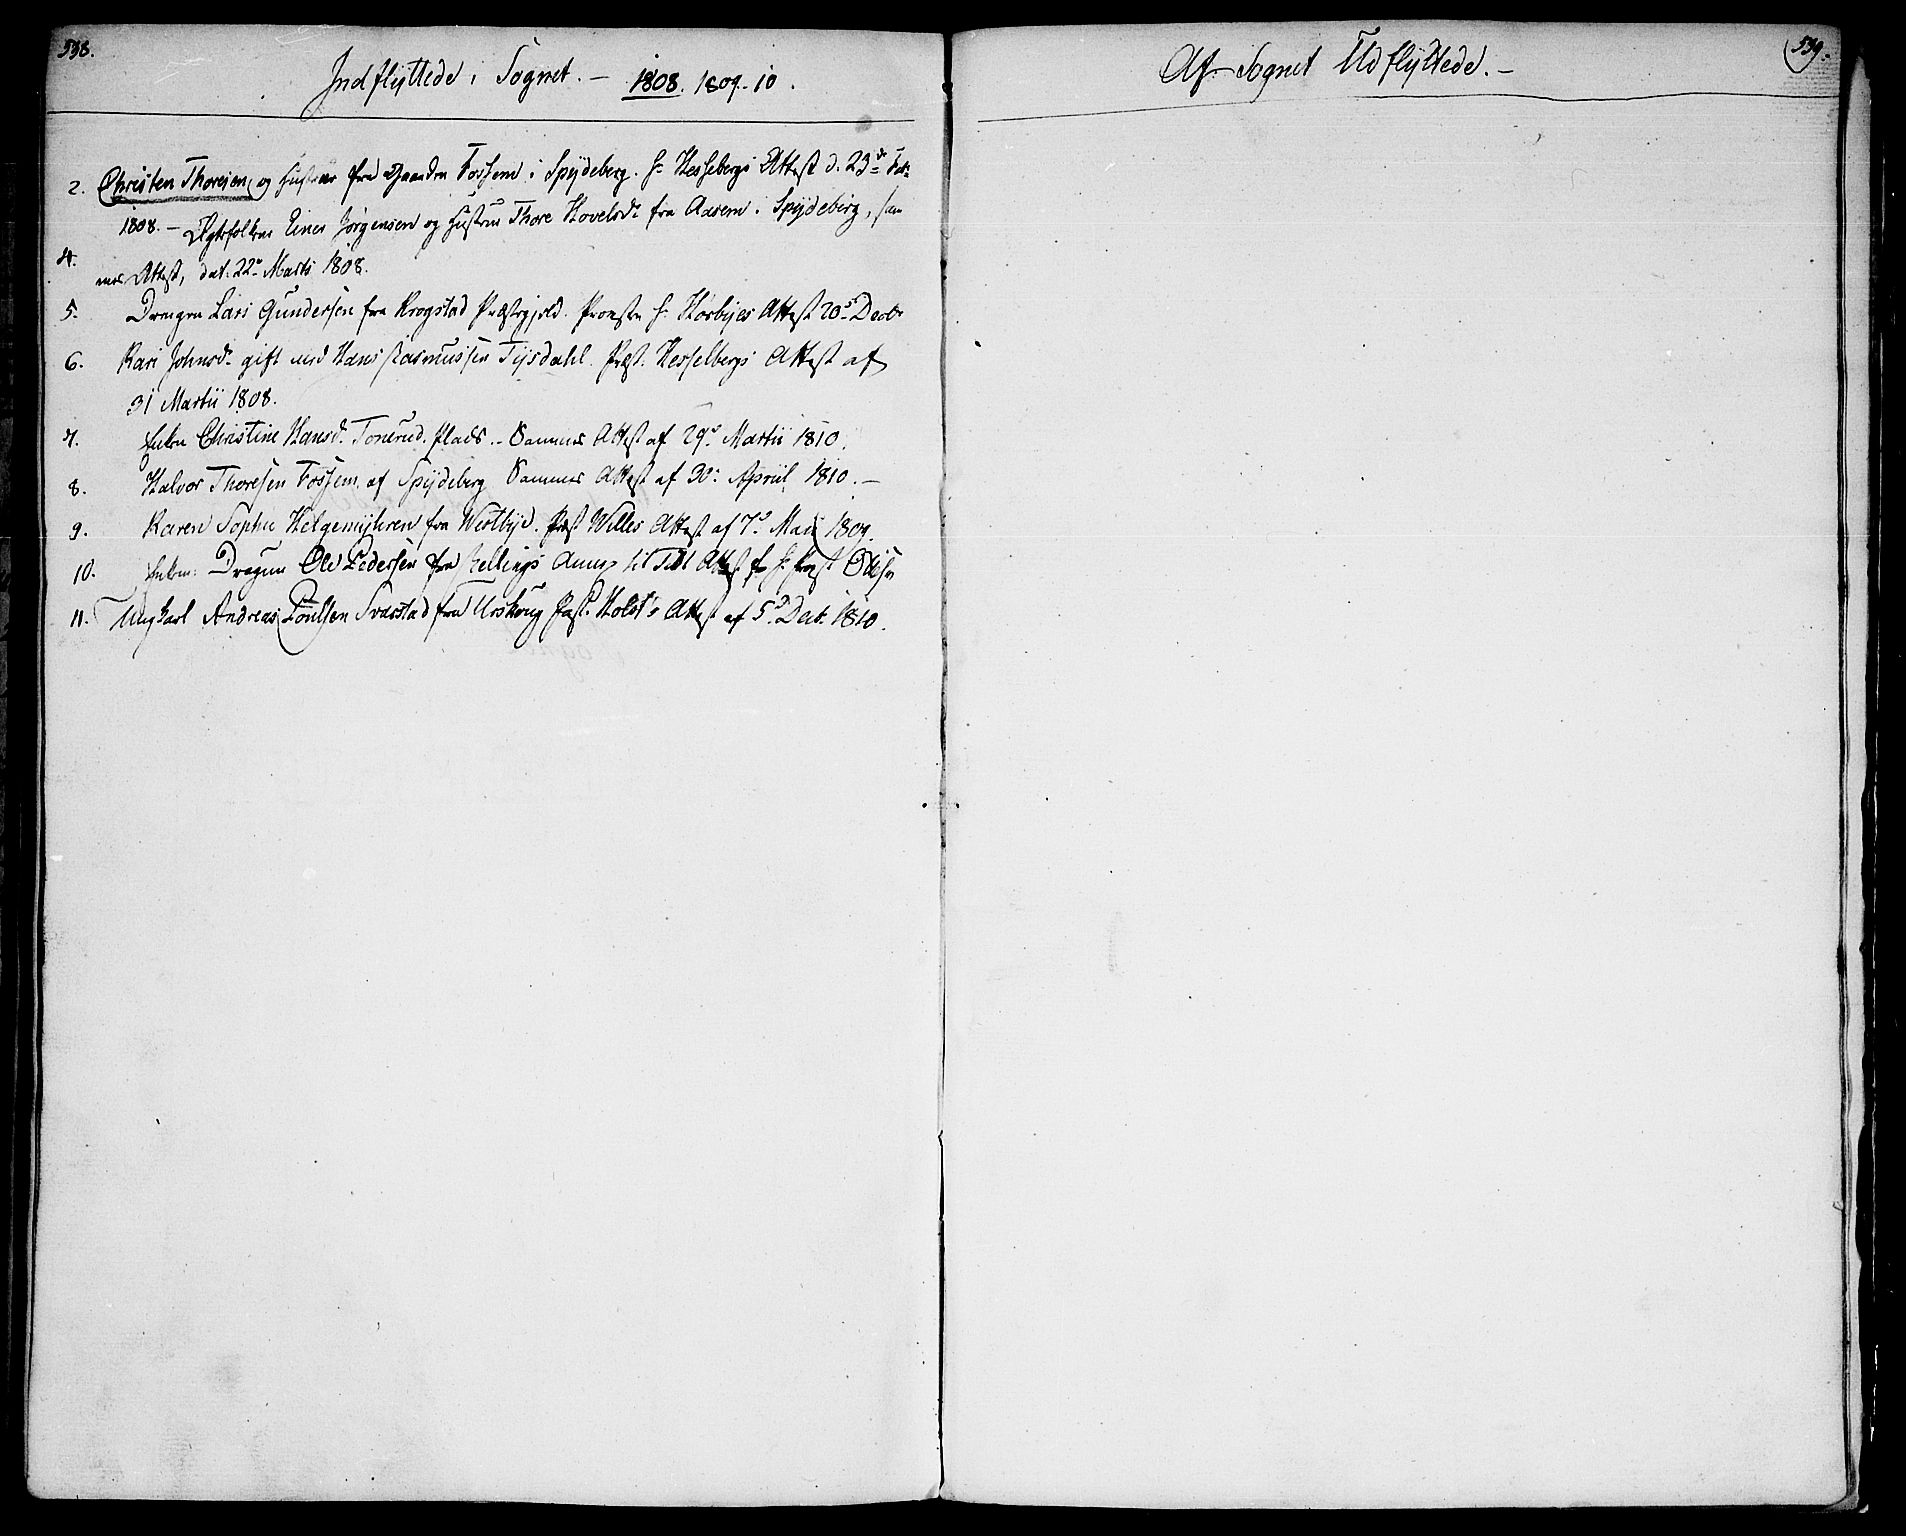 538.
Indflyttede i Sognet. — 1808. 1809. 10.
2. Christen Thoresen og Hustrue fra Gaarden Fossem i Spydeberg. Hr Hesselbergs Attest d. 23de Febr
1808. — Ægtefolkene Einer Jörgensen og Hustrue Thore Hovelsdr fra Aasem i Spydeberg, sam
4. mes Attest, dat. 22de Marts 1808.
5. Drengen Lars Gundersen fra Krogstad Præstegjeld. Provsten Hr Korbyes Attest 20de Decbr
6. Kari Johnsdr gift med Hans Rasmussen Tijsdahl. Præst. Hesselbergs Attest af
31 Martii 1808.
7. Enken Christine Hansd. Tonerud. Plads. - Sammes Attest af 29de Martii 1810.
8. Halvor Thoresen Fossem af Spydeberg Sammes Attest af 30. Apriil 1810. —
9. Karen Sophie Helgemyhren fra Westbye. Præst Willes Attest af 7de Maii 1809.
10. Dragun Ole Pedersen fra Rellings Annex til Attest Hr Præst
11. Ung Karl Andreas Poulsen Svarstad fra Urskoug Past. Holst's Attest af 5. Decb. 1810.
539.
Af Sognet Udflyttede. —